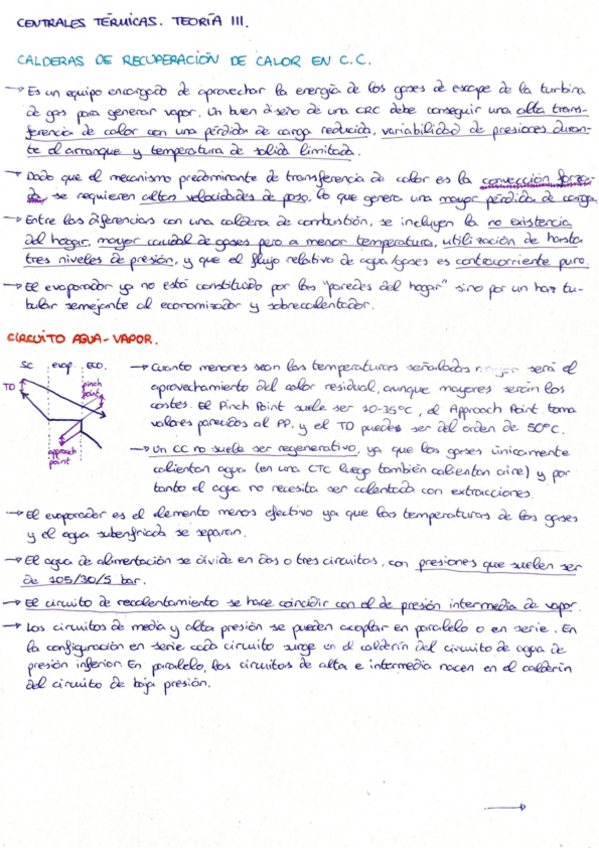 CENTRALES TÉRMICAS. TEORÍA III.
CALDERAS DE RECUPERACIÓN DE CALOR EN C.C.
→ Es un equipo encargado de aprovechar la energía de los gases de escape de la turbina
de gas para generar vapor. Un buen diseño de una CRC debe conseguir una alta trans-
ferencia de calor con una pérdida de carga reducida, variabilidad de presiones duran-
te el arranque y temperatura de salida limitada.
→ Dado que el mecanismo predominante de transferencia de calor es la convección forza-
da, se requieren altas velocidades de paso, lo que genera una mayor pérdida de carga.
→ Entre las diferencias con una caldera de combustión, se incluyen la no existencia
del hogar, mayor caudal de gases pero a menor temperatura, utilización de hasta
tres niveles de presión, y que el flujo relativo de agua/gases es contracorriente puro.
→ El evaporador ya no está constituido por las "paredes del hogar" sino por un haz tu-
bular semejante al economizador y sobrecalentador.
CIRCUITO AGUA-VAPOR.
SC evap ECO.
TD
pinch
point
approach
point
→ Cuanto menores sean las temperaturas señaladas mayor será el
aprovechamiento del calor residual, aunque mayores serán los
costes. El Pinch Point suele ser 10-35ºC, el Approach Point toma
valores parecidos al PP, y el TD puede ser del orden de 50ºC.
→ Un CC no suele ser regenerativo, ya que los gases únicamente
calientan agua (en una CTC luego también calientan aire) y por
tanto el agua no necesita ser calentada con extracciones.
→ El evaporador es el elemento menos efectivo ya que las temperaturas de los gases
y el agua subenfriada se separan.
→ El agua de alimentación se divide en dos o tres circuitos, con presiones que suelen ser
de 105/30/5 bar.
→ El circuito de recalentamiento se hace coincidir con el de presión intermedia de vapor.
→ Los circuitos de media y alta presión se pueden acoplar en paralelo o en serie. En
la configuración en serie cada circuito surge en el calderín del circuito de agua de
presión inferior. En paralelo, los circuitos de alta e intermedia nacen en el calderín
del circuito de baja presión.
→